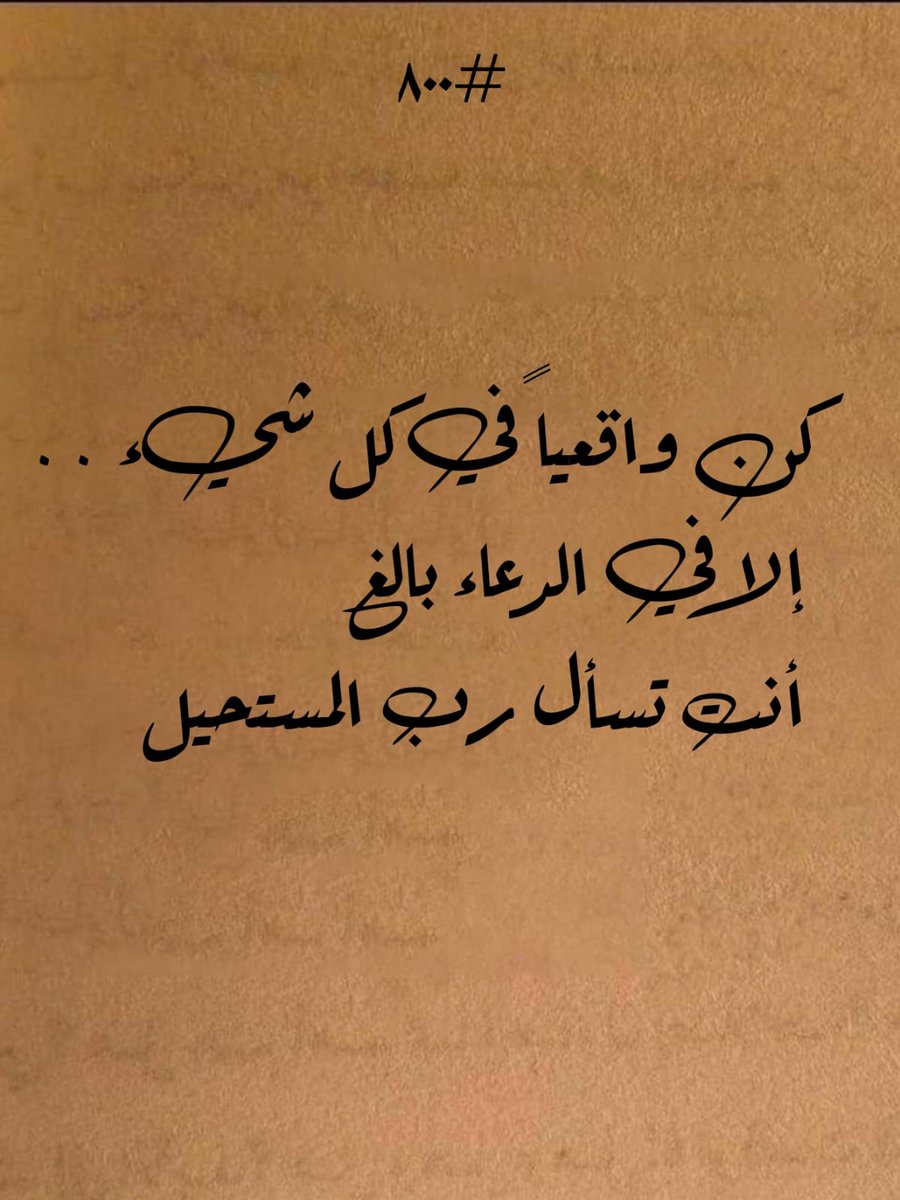 #٨٠٠
كن واقعياً في كل شيء . .
إلا في الدعاء بالغ
أنت تسأل رب المستحيل